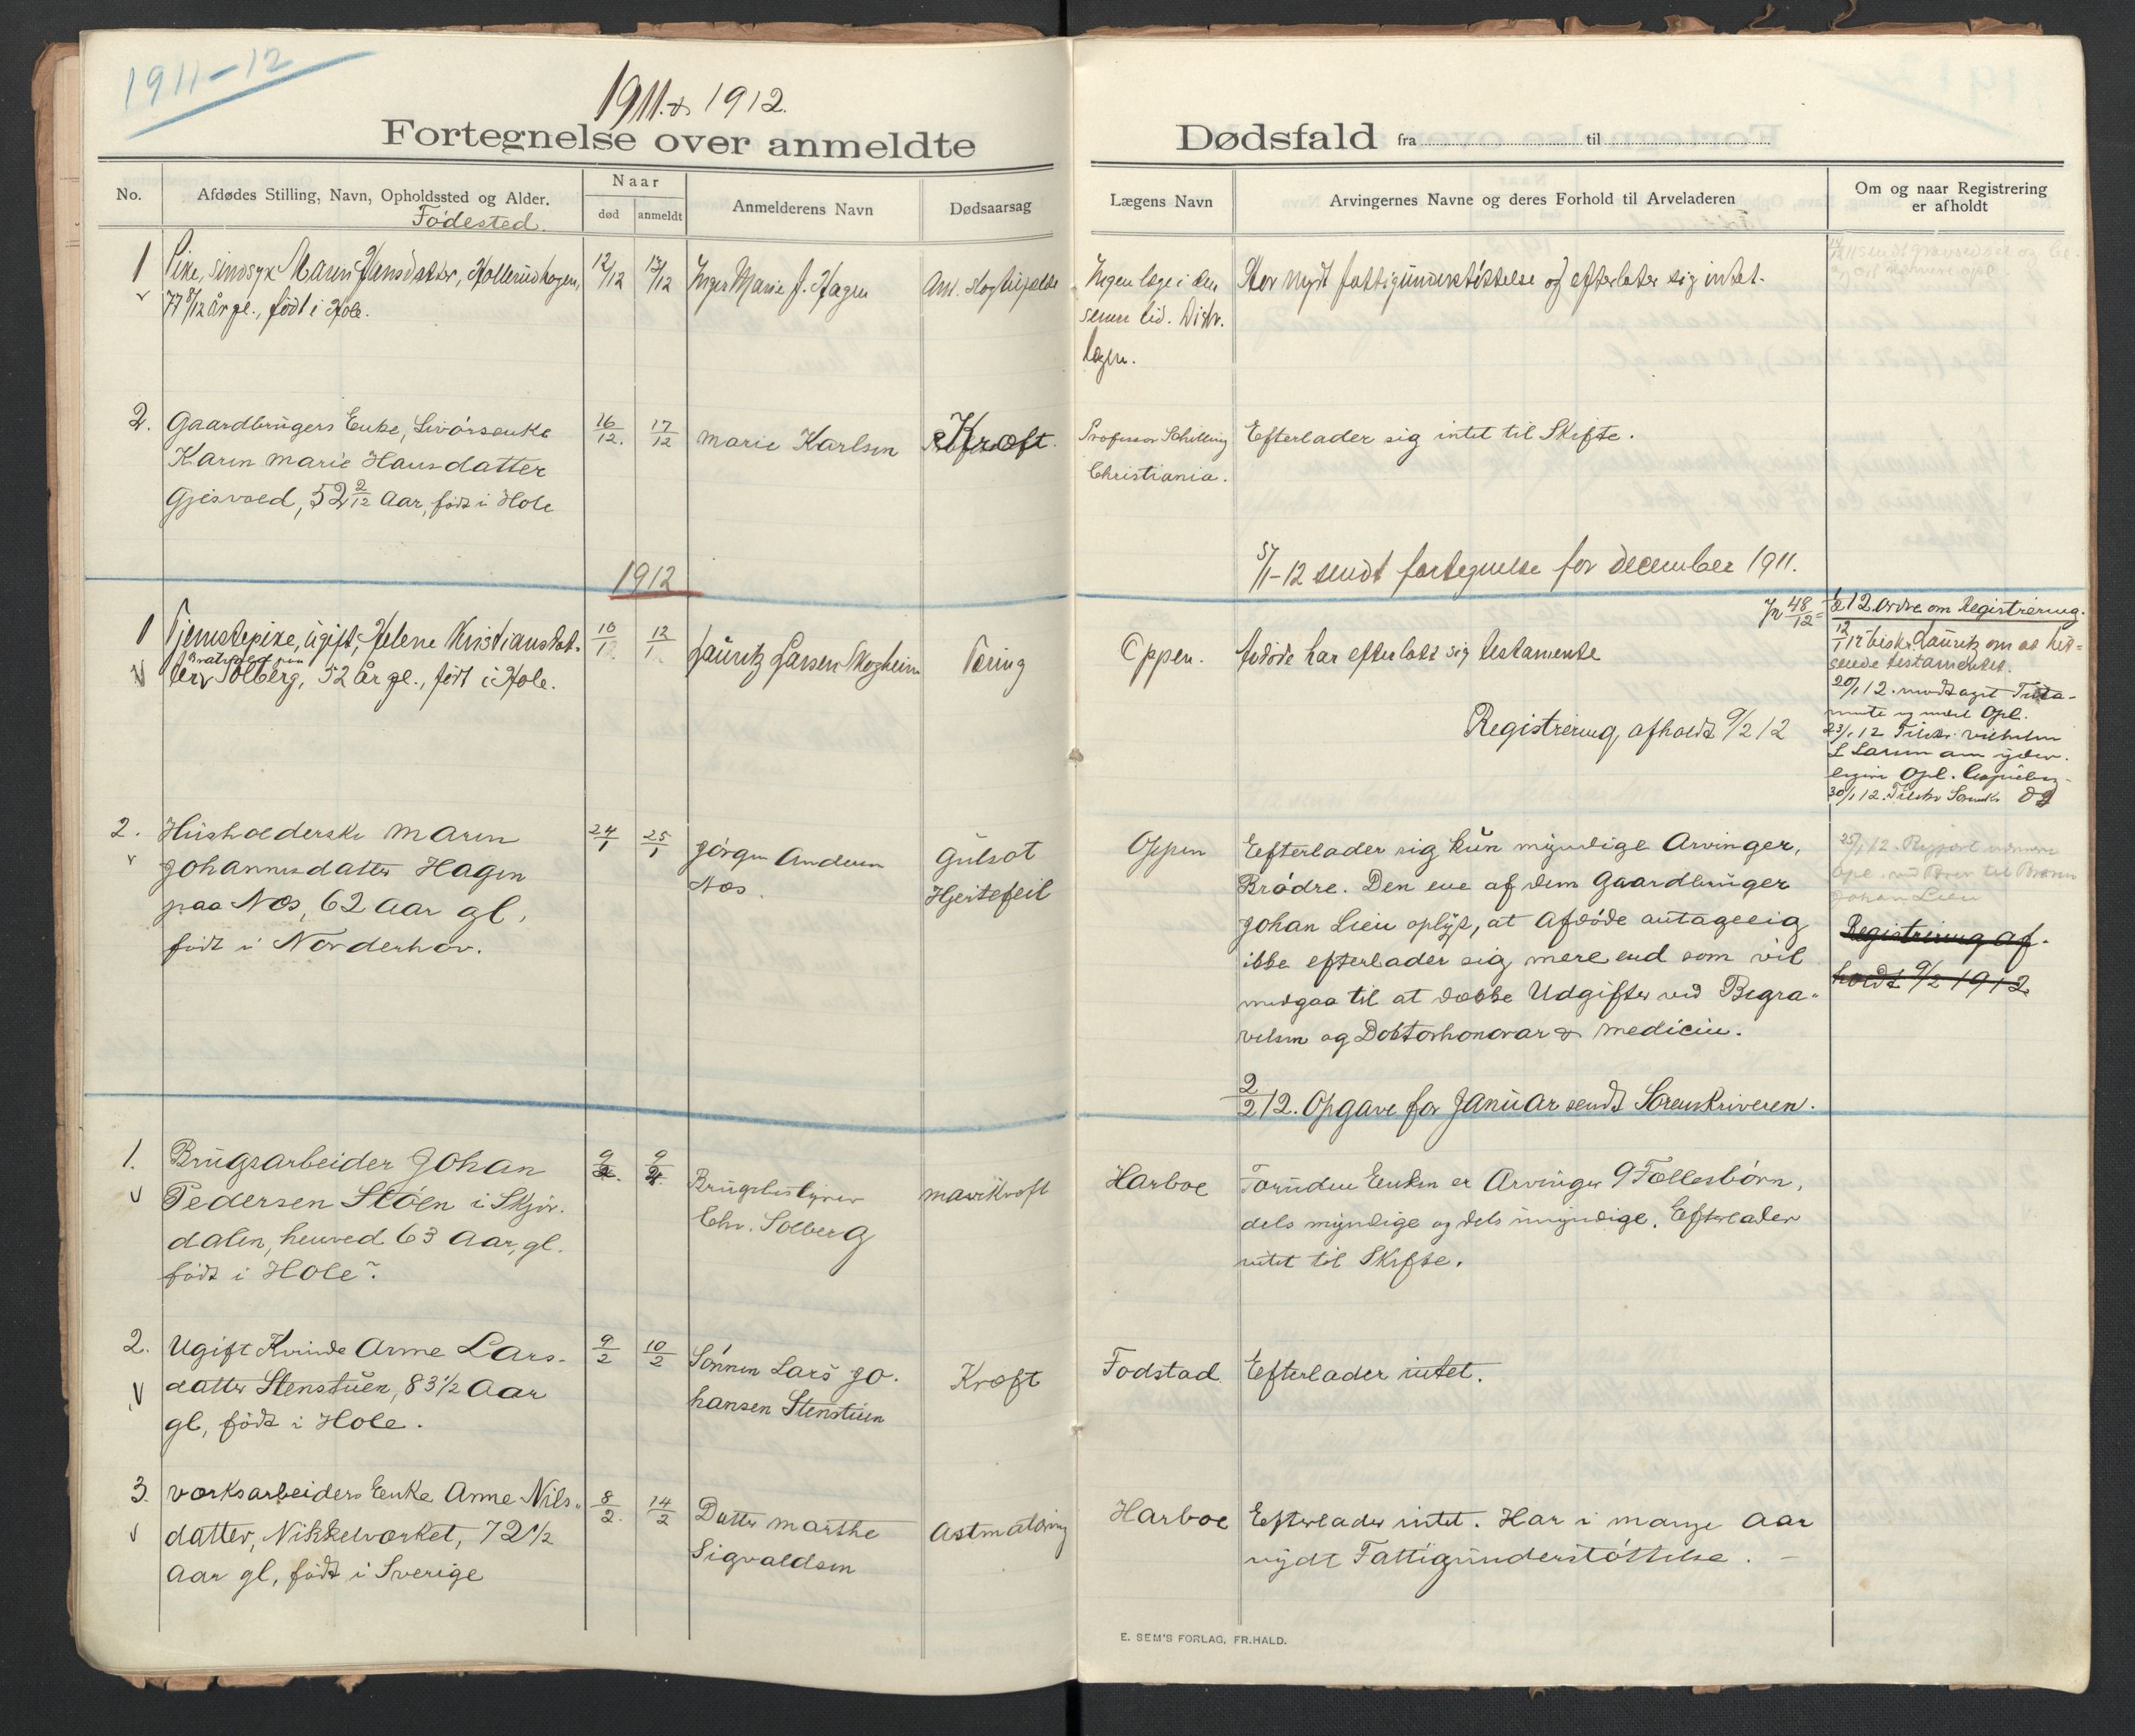 1911-12
1911. & 1912.
Fortegnelse over anmeldte
Dødsfald fra til
No.
Afdødes Stilling, Navn, Opholdssted og Alder.
Fødested.
Naar
død
anmeldt
Anmelderens Navn
Dødsaarsag
Lægens Navn
Arvingernes Navne og deres Forhold til Arveladeren
Om og naar Registrering
er afholdt
1
Pike, sindsyk Maren Hansdatter, Kollerudhagen,
77 8/12 år gl., født i Hole.
12/12
13/12
Inger Marie J. Hagen
Ant. slagtilfælde
Ingen læge i den
senere tid. Distr.
lægen.
Har nydt fattigunderstøttelse og efterlater sig intet.
2.
Gaardbrugers Enke,
Karen Marie Hansdatter
Gjesvold, 52 2/12 Aar, født i Hole
16/12.
17/12
Marie Karlsen
Kræft.
Professor Schilling
Christiania.
Efterlader sig intet til Skifte.
5/1-12 sendt fortegnelse for december 1911.
1912
1
Tjenestepike, ugift, Helene Kristiansdat-
ter Solberg, 52 år gl., født i Hole.
10/1
12/1
Lauritz Larsen Mogheim
Tæring
Oppen.
Afdøde har efterlatt sig testamente
Registrering afholdt 9/2 12
Jr 48/12 =
12 ordre om Registrering.
12/1 12 beskr. Lauritz om at hit-
sende testamentet.
20/1 12. modtaget Testa-
mente og Opl.
23/1 12 Vilhelm
L Larsen om yder-
ligere Opl.
30/1 12.
2.
Husholderske Maren
Johannesdatter Hagen
paa Næs, 62 Aar gl,
født i Norderhov.
24/1
25/1
Jørgen Andersen
Næs.
Gulsot
Hjertefeil
Oppen
Eefterlader sig kun myndige Arvinger,
Brødre. Den ene af dem Gaardbruger
Johan Lien oplyst, at Afdøde antagelig
ikke efterlader sig mere end som vil
medgaa til at dække Udgifter ved Begra-
velsen og Doktorhonorar & Medicin.
25/1 12. Rapport
Opl. ved Brev til Broren
Johan Lien
Registrering af-
holdt 9/2 1912.
2/2 12. Opgave for Januar sendt Sorenskriveren.
1.
Brugsarbeider Johan
Pedersen Støen i Skjær-
dalen, henved 63 Aar, gl.
født i Hole.
9/2.
9/2.
Brugsbestyrer
Chr. Solberg
Mavekræft
Harboe
Foruden Enken er Arvinger 9 Fællesbørn,
dels myndige og dels umyndige. Efterlader
intet til Skifte.
2.
Ugift Kvinde Anne Lars-
datter Stenstuen, 83 1/2 Aar
gl, født i Hole.
9/2
10/2
Sønnen Lars Jo-
hansen Stenstuen
Kræft
Fodstad
Efterlader intet.
3.
Værksarbeiders Enke Anne Nils-
datter, Nikkelværket, 72 1/2
Aar gl, født i Sverige
8/2.
14/2
Datter Marthe
Sigvaldsen
Harboe
Efterlader intet. Har i mange Aar
nydt Fattigunderstøttelse. -
E. SEM'S FORLAG, FR.HALD.